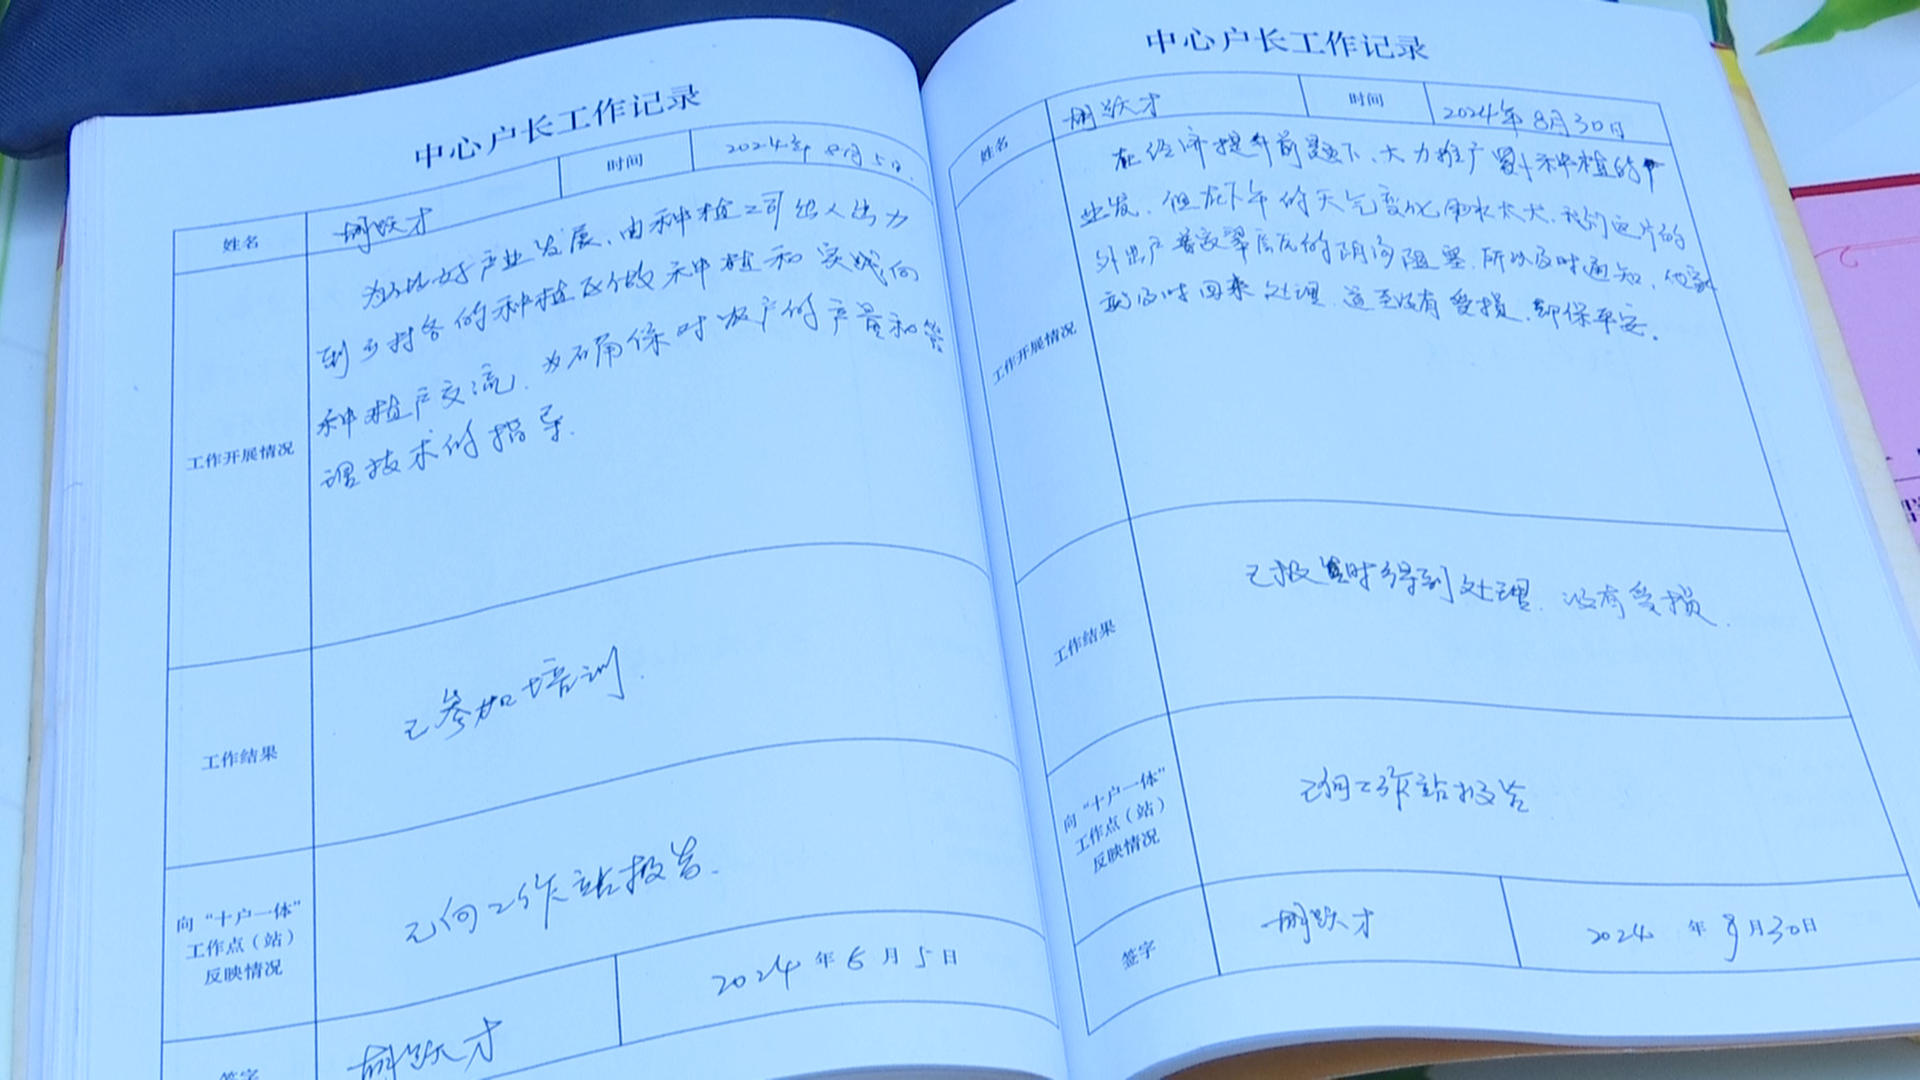 中心户长工作记录
姓名 胡跃才 时间 2024年8月5日.
工作开展情况
产业发展、由种植公司 人出力
到乡村各的种植区做种植和实践向
种植户交流. 为了确保对农户的产量和管
理技术的指导.
工作结果
已参加培训.
向“十户一体”
工作点（站）
反映情况
已向工作站报告.
签字 胡跃才 2024年6月5日
中心户长工作记录
姓名 胡跃才 时间 2024年8月30日
工作开展情况
在经济提升前题下、大力推广 种植的
业发. 但在下年的天气变化雨水太大. 我们这片的
外出户 的阴沟阻塞. 所以及时通知. 他家
及时回来处理. 没有受损. 即保平安.
工作结果
已报 时得到处理. 没有受损.
向“十户一体”
工作点（站）
反映情况
已向工作站报告
签字 胡跃才 2024年8月30日